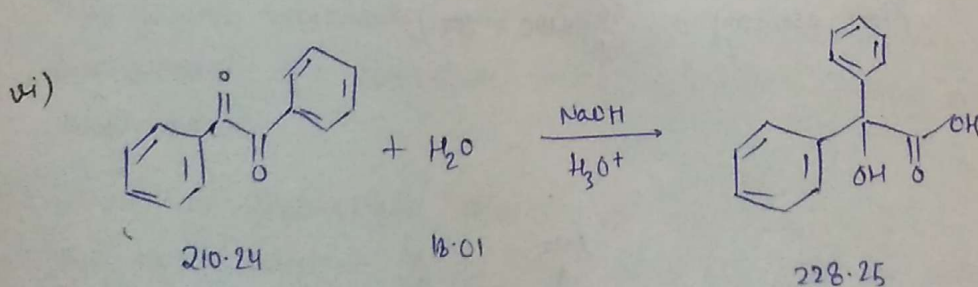 vi)
O
O
+ H₂O
NaOH
H₃O⁺
OH
OH O
210.24
18.01
228.25